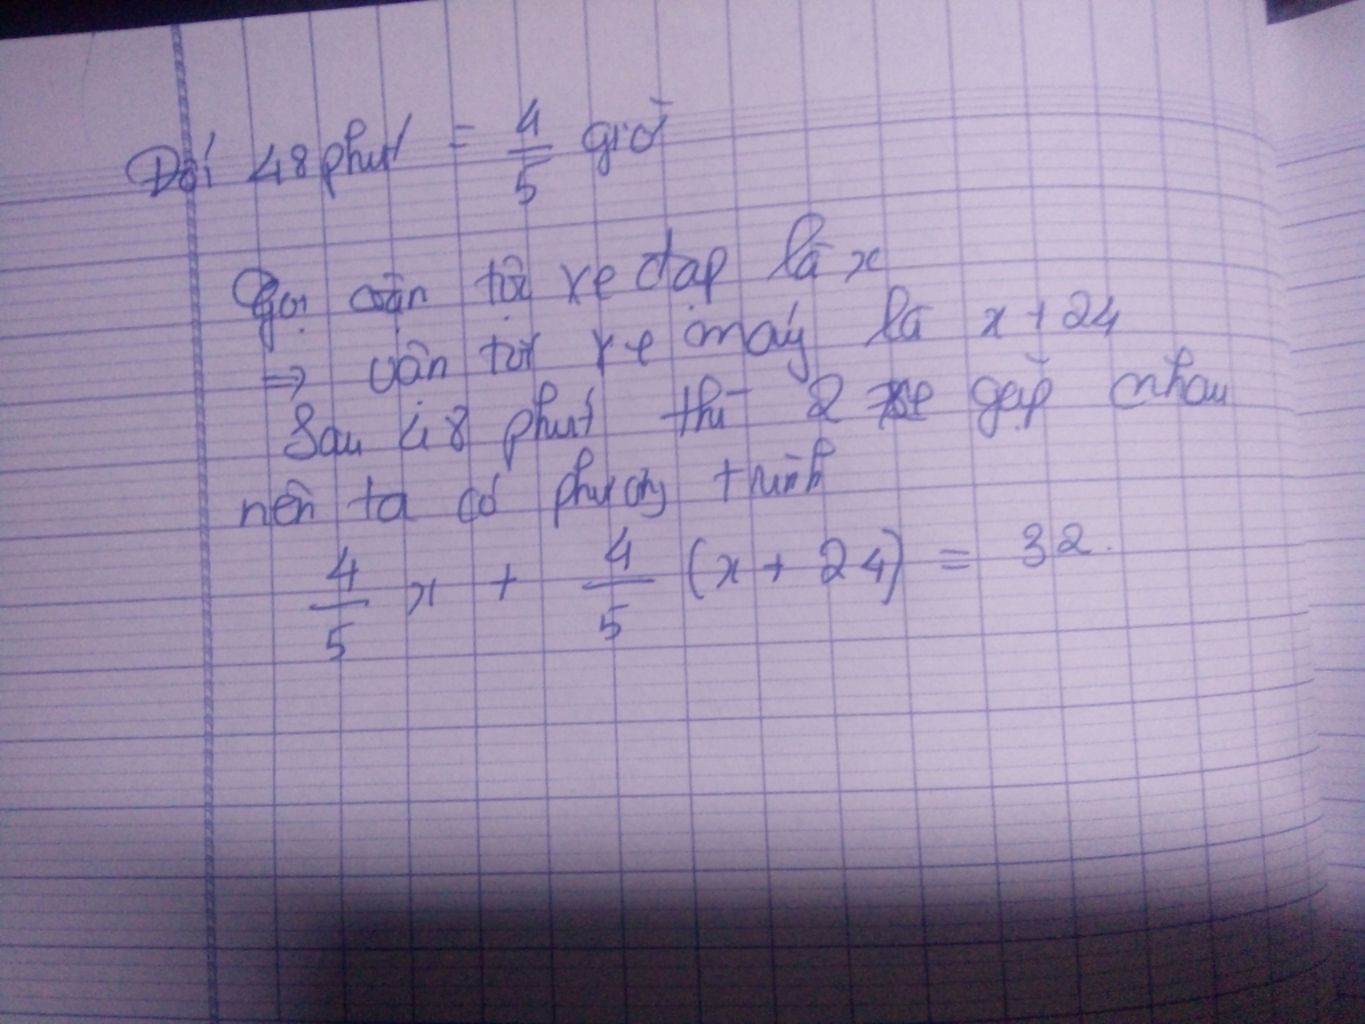 Đổi 48 phút = 4/5 giờ
Gọi vận tốc xe đạp là x
=> vận tốc xe máy là x + 24
Sau 48 phút thì 2 xe gặp nhau
nên ta có phương trình
4/5 x + 4/5 (x + 24) = 32.